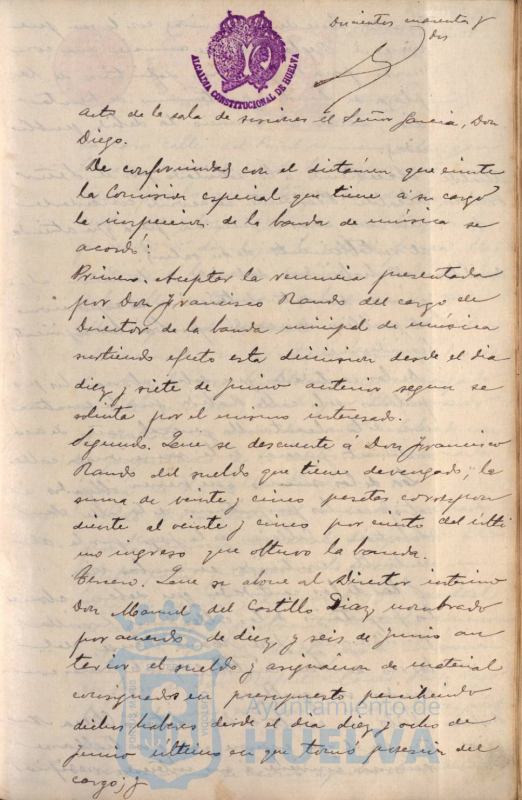 Doscientos cuarenta y
dos
ALCALDIA CONSTITUCIONAL DE HUELVA
acto de la sala de sesiones el Señor Garcia, Don
Diego.
De conformidad con el dictámen que emite
la Comision especial que tiene á su cargo
la inspeccion de la banda de música se
acordó:
Primero. Aceptar la renuncia presentada
por Don Francisco Rando del cargo de
Director de la banda municipal de música
surtiendo efecto esta dimision desde el dia
diez y siete de junio anterior segun se
solicita por el mismo interesado.
Segundo. Que se descuente á Don Francisco
Rando del sueldo que tiene devengado, la
suma de veinte y cinco pesetas correspon
diente al veinte y cinco por ciento del últi
mo ingreso que obtuvo la banda.
Tercero. Que se abone al Director interino
Don Manuel del Castillo Diaz nombrado
por acuerdo de diez y seis de junio an
terior el sueldo y asignacion de material
consignado en presupuesto percibiendo
dichos haberes desde el dia diez y ocho de
junio último en que tomó posesion del
cargo; y
Ayuntamiento de
HUELVA